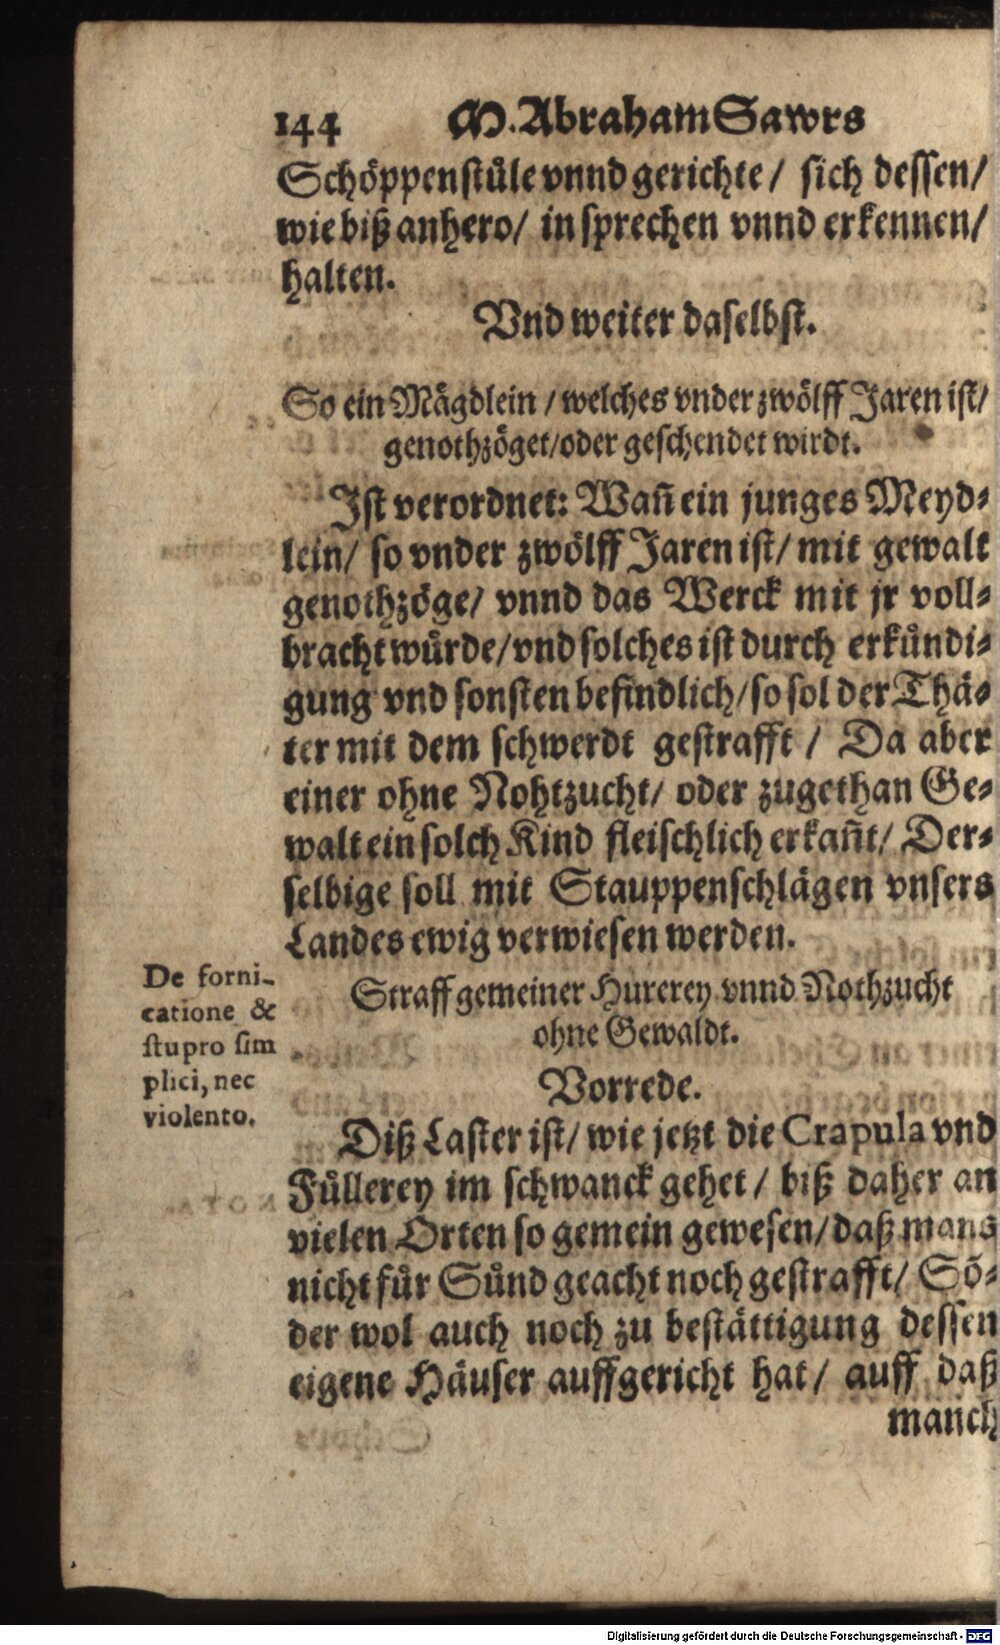 144 M. Abraham Sawrs
Schöppenstüle vnnd gerichte / sich dessen/
wie biß anhero/ in sprechen vnnd erkennen/
halten.
Vnd weiter daselbst.
So ein Mägdlein / welches vnder zwölff Jaren ist/
genothzöget/oder geschendet wirdt.
Ist verordnet: Wañ ein junges Meyd⸗
lein/ so vnder zwölff Jaren ist/ mit gewalt
genothzöge/ vnnd das Werck mit jr voll⸗
bracht würde/vnd solches ist durch erkündi⸗
gung vnd sonsten befindlich/so sol der Thä⸗
ter mit dem schwerdt gestrafft / Da aber
einer ohne Nohtzucht/ oder zugethan Ge⸗
walt ein solch Kind fleischlich erkañt/ Der⸗
selbige soll mit Stauppenschlägen vnsers
Landes ewig verwiesen werden.
De forni-
catione &
stupro sim
plici, nec
violento.
Straff gemeiner Hurerey vnnd Nothzucht
ohne Gewaldt.
Vorrede.
Diß Laster ist/ wie jetzt die Crapula vnd
Füllerey im schwanck gehet / biß daher an
vielen Orten so gemein gewesen/daß mans
nicht für Sünd geacht noch gestrafft/ Sö⸗
der wol auch noch zu bestättigung dessen
eigene Häuser auffgericht hat / auff daß
manch
Digitalisierung gefördert durch die Deutsche Forschungsgemeinschaft - DFG